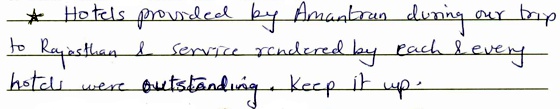 ★ Hotels provided by Amantran during our trip
to Rajasthan & service rendered by each & every
hotels were outstanding. Keep it up.